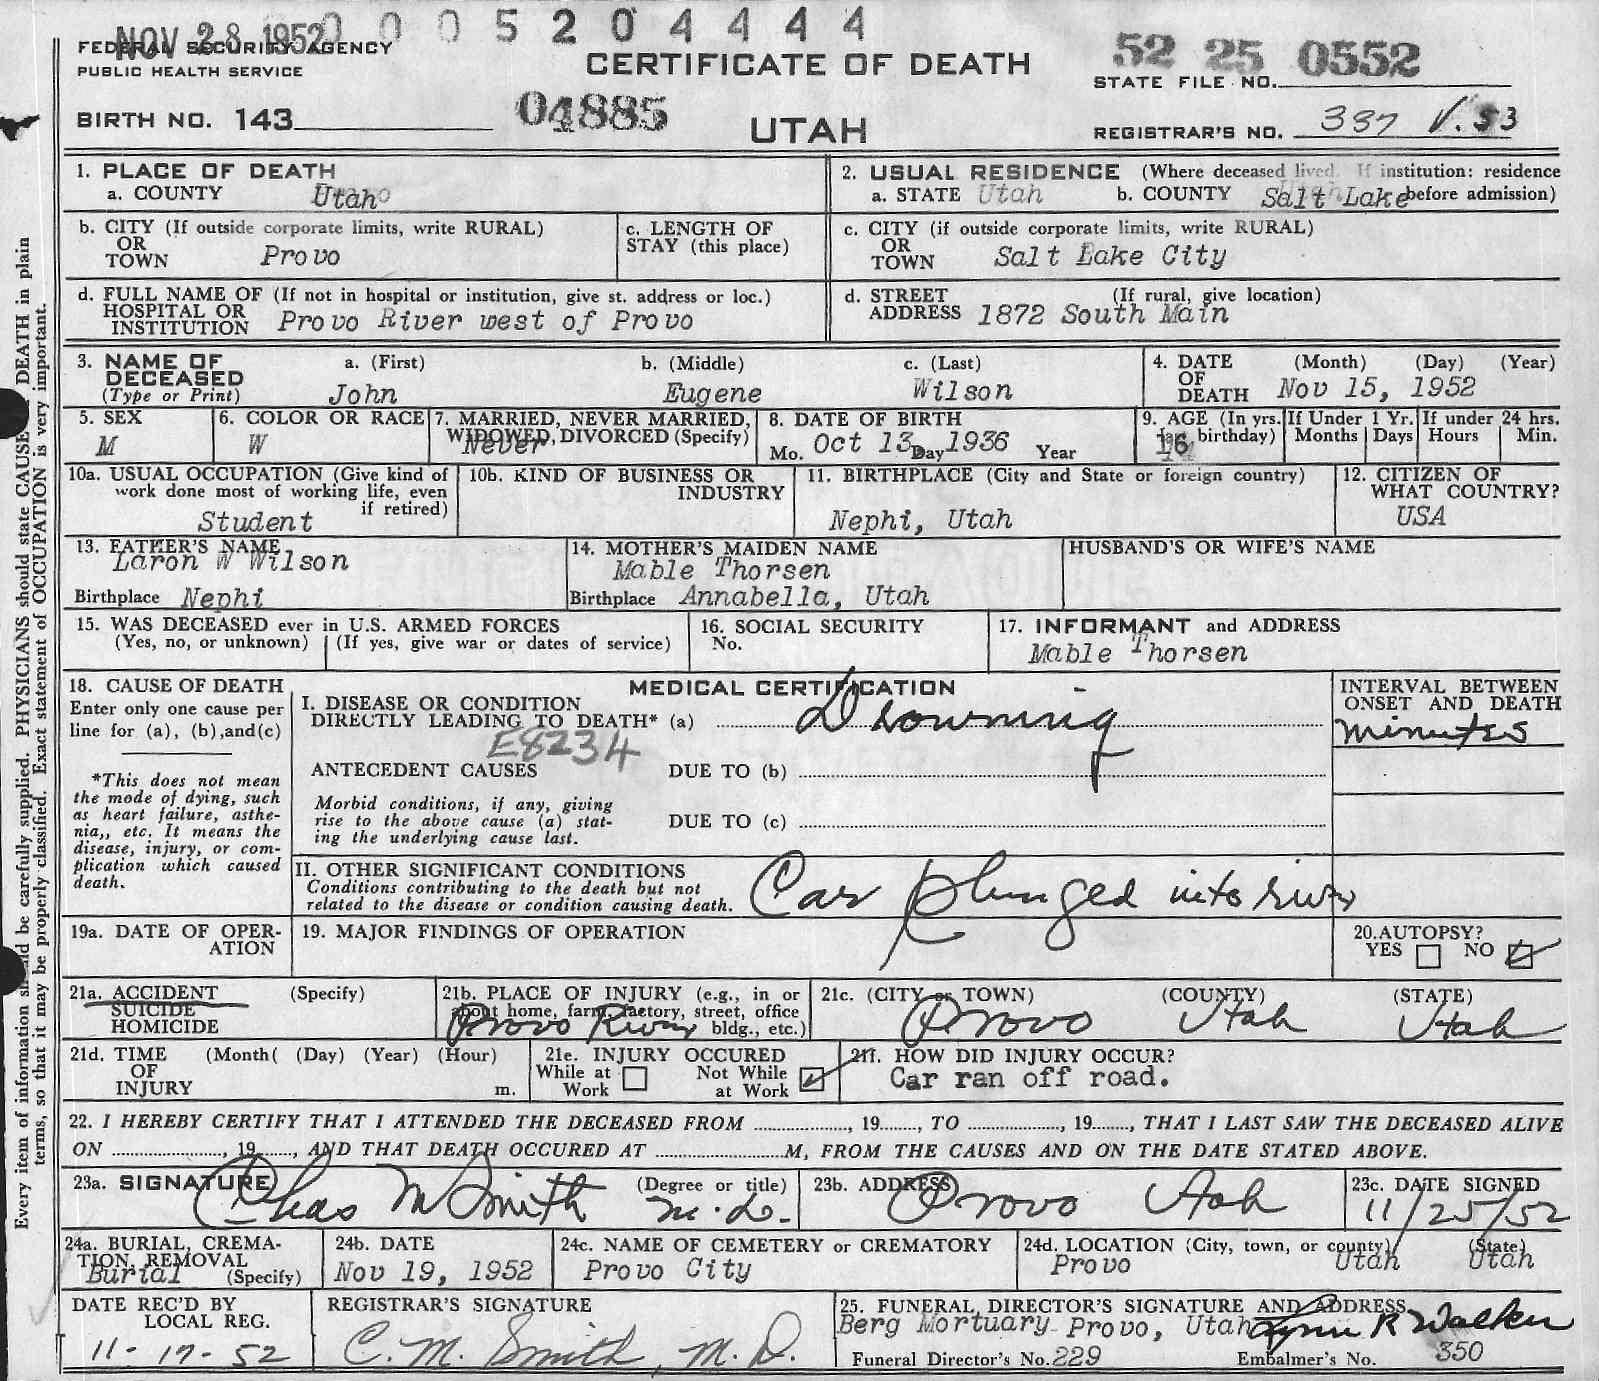 NOV 28 1952 0 0 0 5 2 0 4 4 4 4
FEDERAL SECURITY AGENCY
PUBLIC HEALTH SERVICE
CERTIFICATE OF DEATH
52 25 0552
STATE FILE NO.
BIRTH NO. 143
04885
UTAH
REGISTRAR'S NO. 337 V.53
1. PLACE OF DEATH
a. COUNTY Utah
2. USUAL RESIDENCE (Where deceased lived. If institution: residence before admission)
a. STATE Utah b. COUNTY Salt Lake
b. CITY (If outside corporate limits, write RURAL)
OR
TOWN Provo
c. LENGTH OF
STAY (this place)
c. CITY (if outside corporate limits, write RURAL)
OR
TOWN Salt Lake City
d. FULL NAME OF (If not in hospital or institution, give st. address or loc.)
HOSPITAL OR
INSTITUTION Provo River west of Provo
d. STREET (If rural, give location)
ADDRESS 1872 South Main
3. NAME OF
DECEASED
(Type or Print)
a. (First) b. (Middle) c. (Last)
John Eugene Wilson
4. DATE (Month) (Day) (Year)
OF
DEATH Nov 15, 1952
5. SEX
M
6. COLOR OR RACE
W
7. MARRIED, NEVER MARRIED,
WIDOWED, DIVORCED (Specify)
Never
8. DATE OF BIRTH
Mo. Oct 13, Day 1936 Year
9. AGE (In yrs. last birthday) 16
If Under 1 Yr. If under 24 hrs.
Months Days Hours Min.
10a. USUAL OCCUPATION (Give kind of
work done most of working life, even
if retired)
Student
10b. KIND OF BUSINESS OR
INDUSTRY
11. BIRTHPLACE (City and State or foreign country)
Nephi, Utah
12. CITIZEN OF
WHAT COUNTRY?
USA
13. FATHER'S NAME
Laron W Wilson
Birthplace Nephi
14. MOTHER'S MAIDEN NAME
Mable Thorsen
Birthplace Annabella, Utah
HUSBAND'S OR WIFE'S NAME
15. WAS DECEASED ever in U.S. ARMED FORCES
(Yes, no, or unknown) (If yes, give war or dates of service)
16. SOCIAL SECURITY
No.
17. INFORMANT and ADDRESS
Mable Thorsen
18. CAUSE OF DEATH
Enter only one cause per
line for (a), (b),and(c)
*This does not mean
the mode of dying, such
as heart failure, asthe-
nia,, etc. It means the
disease, injury, or com-
plication which caused
death.
MEDICAL CERTIFICATION
I. DISEASE OR CONDITION
DIRECTLY LEADING TO DEATH* (a) Drowning
E8234
ANTECEDENT CAUSES DUE TO (b)
Morbid conditions, if any, giving
rise to the above cause (a) stat-
ing the underlying cause last.
DUE TO (c)
INTERVAL BETWEEN
ONSET AND DEATH
minutes
II. OTHER SIGNIFICANT CONDITIONS
Conditions contributing to the death but not
related to the disease or condition causing death.
Car plunged into river
19a. DATE OF OPER-
ATION
19. MAJOR FINDINGS OF OPERATION
20.AUTOPSY?
YES NO
21a. ACCIDENT (Specify)
SUICIDE
HOMICIDE
21b. PLACE OF INJURY (e.g., in or
about home, farm, factory, street, office
bldg., etc.)
Provo River
21c. (CITY or TOWN) (COUNTY) (STATE)
Provo Utah Utah
21d. TIME (Month( (Day) (Year) (Hour)
OF
INJURY m.
21e. INJURY OCCURED
While at Work Not While at Work
21f. HOW DID INJURY OCCUR?
Car ran off road.
22. I HEREBY CERTIFY THAT I ATTENDED THE DECEASED FROM , 19 , TO , 19 , THAT I LAST SAW THE DECEASED ALIVE
ON , 19 , AND THAT DEATH OCCURED AT M, FROM THE CAUSES AND ON THE DATE STATED ABOVE.
23a. SIGNATURE (Degree or title)
Chas M Smith M.D.
23b. ADDRESS
Provo Utah
23c. DATE SIGNED
11/25/52
24a. BURIAL, CREMA-
TION, REMOVAL
Burial (Specify)
24b. DATE
Nov 19, 1952
24c. NAME OF CEMETERY or CREMATORY
Provo City
24d. LOCATION (City, town, or county) (State)
Provo Utah Utah
DATE REC'D BY
LOCAL REG.
11-17-52
REGISTRAR'S SIGNATURE
C. M. Smith, M.D.
25. FUNERAL DIRECTOR'S SIGNATURE AND ADDRESS
Berg Mortuary Provo, Utah Lynn R Walker
Funeral Director's No. 229 Embalmer's No. 350
Every item of information should be carefully supplied. PHYSICIANS should state CAUSE OF DEATH in plain
terms, so that it may be properly classified. Exact statement of OCCUPATION is very important.